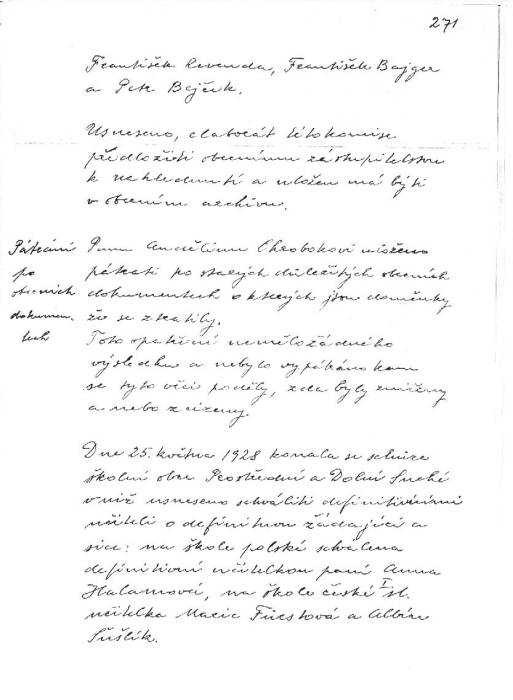 271
František Revenda, František Bajger
a Petr Bajčík.
Usneseno, elaborát této komise
předložiti obecnímu zástupitelstvu
k nahlédnutí a uložen má býti
v obecním archivu.
Pátrání
po
obecních
dokumen-
tech
Panu Andělínu Chrobokovi uloženo
pátrati po starých důležitých obecních
dokumentech o kterých jsou domněnky
že se ztratily.
Toto opatření nemělo žádného
výsledku a nebylo vypátráno kam
se tyto věci poděly, zda byly zničeny
a nebo zcizeny.
Dne 25. května 1928 konala se schůze
školní obce Prostřední a Dolní Suché
v níž usneseno schváliti definitivními
učiteli o definitivu žádající a
sice: na škole polské schválena
definitivní učitelkou paní Anna
Halamová, na škole české I. st.
učitelka Marie Fürstová a Albín
Šušlík.